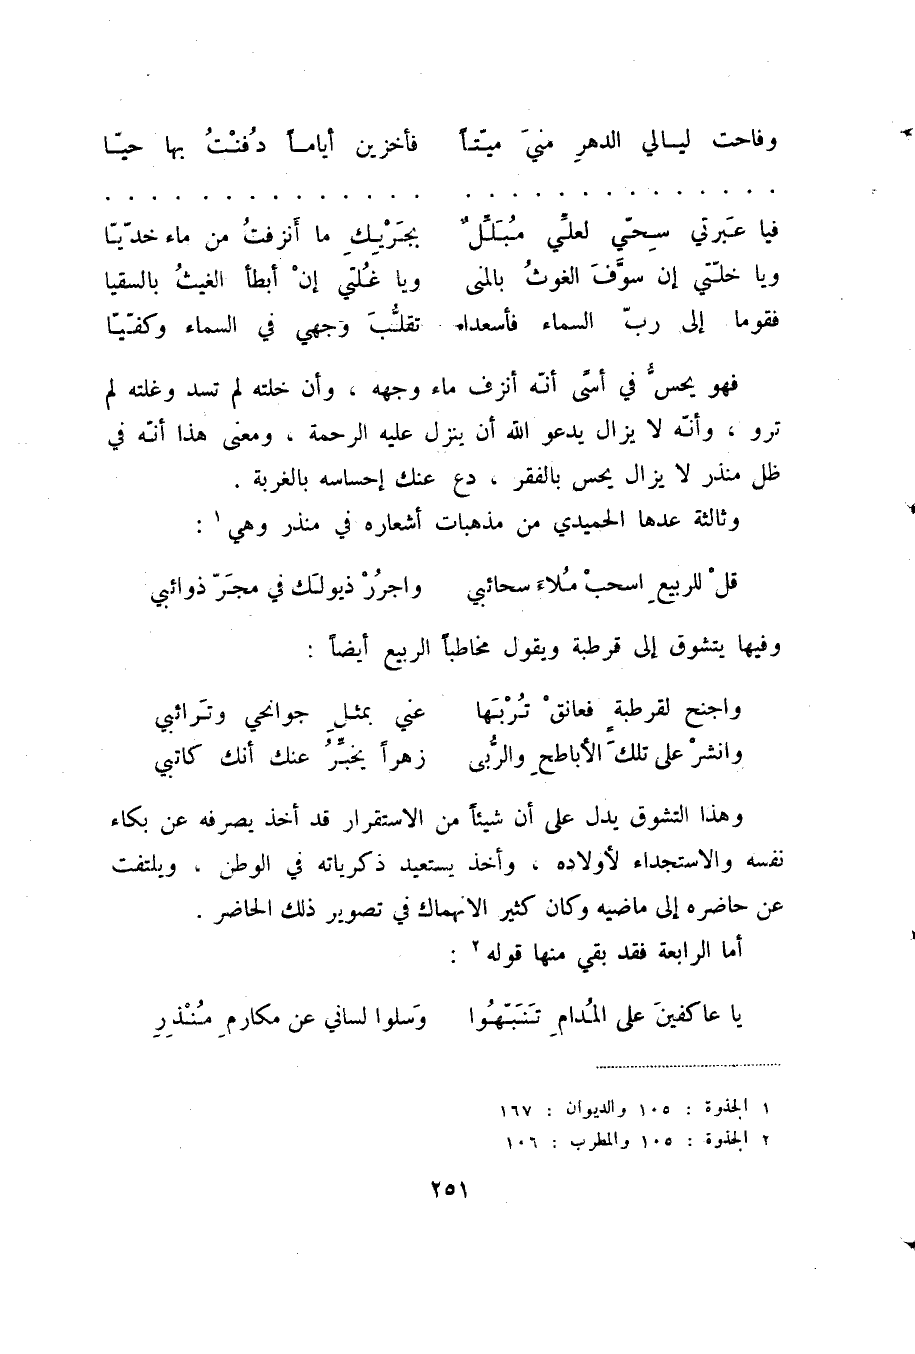 وفاحت ليالي الدهرِ منيَ ميّتاً فأخزين أياماً دُفنْتُ بها حيّا
. . . . . . . . . . . . . . . . . . . . . . . . . . . .
فيا عَبرتي سِحّي لعلّي مُبَلِّلٌ بجَرْيِكِ ما أَنزفتُ من ماء خدّيّا
ويا خلّتي إن سوَّفَ الغوثُ بالمنى ويا غُلّتي إنْ أبطأ الغيثُ بالسقيا
فقوما إلى ربّ السماء فأسعدا تقلُّبَ وَجهي في السماء وكفّيّا
فهو يحسُّ في أسًى أنّه أنزف ماء وجهه ، وأن خلته لم تسد وغلته لم
ترو ، وأنّه لا يزال يدعو الله أن ينزل عليه الرحمة ، ومعنى هذا أنّه في
ظل منذر لا يزال يحس بالفقر ، دع عنك إحساسه بالغربة .
وثالثة عدها الحميدي من مذهبات أشعاره في منذر وهي ١ :
قلْ للربيعِ اسحبْ مُلاءَ سحائبي واجرُرْ ذيولَك في مجَرّ ذوائبي
وفيها يتشوق إلى قرطبة ويقول مخاطباً الربيع أيضاً :
واجنح لقرطبةٍ فعانقْ تُرْبَها عني بمثلِ جوانحي وتَرائبي
وانشرْ على تلكَ الأباطحِ والرُّبى زهراً يخبِّرُ عنك أنك كاتبي
وهذا التشوق يدل على أن شيئاً من الاستقرار قد أخذ يصرفه عن بكاء
نفسه والاستجداء لأولاده ، وأخذ يستعيد ذكرياته في الوطن ، ويلتفت
عن حاضره إلى ماضيه وكان كثير الانهماك في تصوير ذلك الحاضر .
أما الرابعة فقد بقي منها قوله ٢ :
يا عاكفينَ على المُدامِ تَنَبّهُوا وَسلوا لساني عن مكارمِ مُنْذِرِ
١ الجذوة : ١٠٥ والديوان : ١٦٧
٢ الجذوة : ١٠٥ والمطرب : ١٠٦
٢٥١